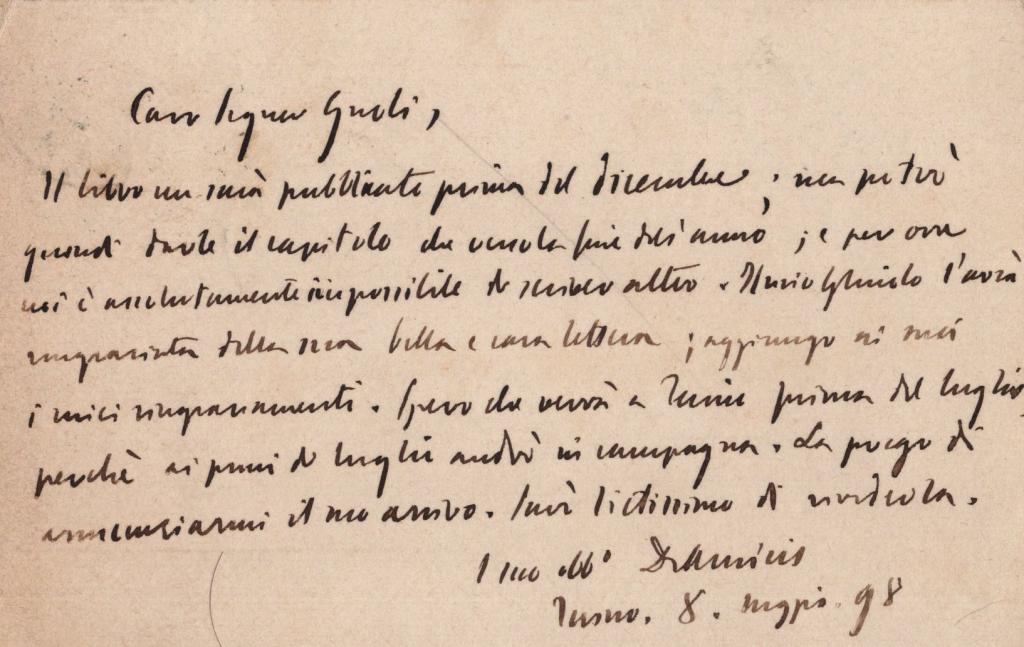 Caro Signor Gnoli,
Il libro non sarà pubblicato prima del dicembre; non potrò
quindi darle il capitolo che verso la fine dell'anno; e per ora
mi è assolutamente impossibile di scriver altro. Il mio l'avrà
ringraziata della sua bella e cara lettera; aggiungo ai suoi
i miei ringraziamenti. Spero che verrà a Torino prima del luglio,
perchè ai primi di luglio andrò in campagna. La prego di
annunciarmi il suo arrivo. Sarò lietissimo di rivederla.
Il suo obb° DeAmicis
Torino. 8. maggio. 98